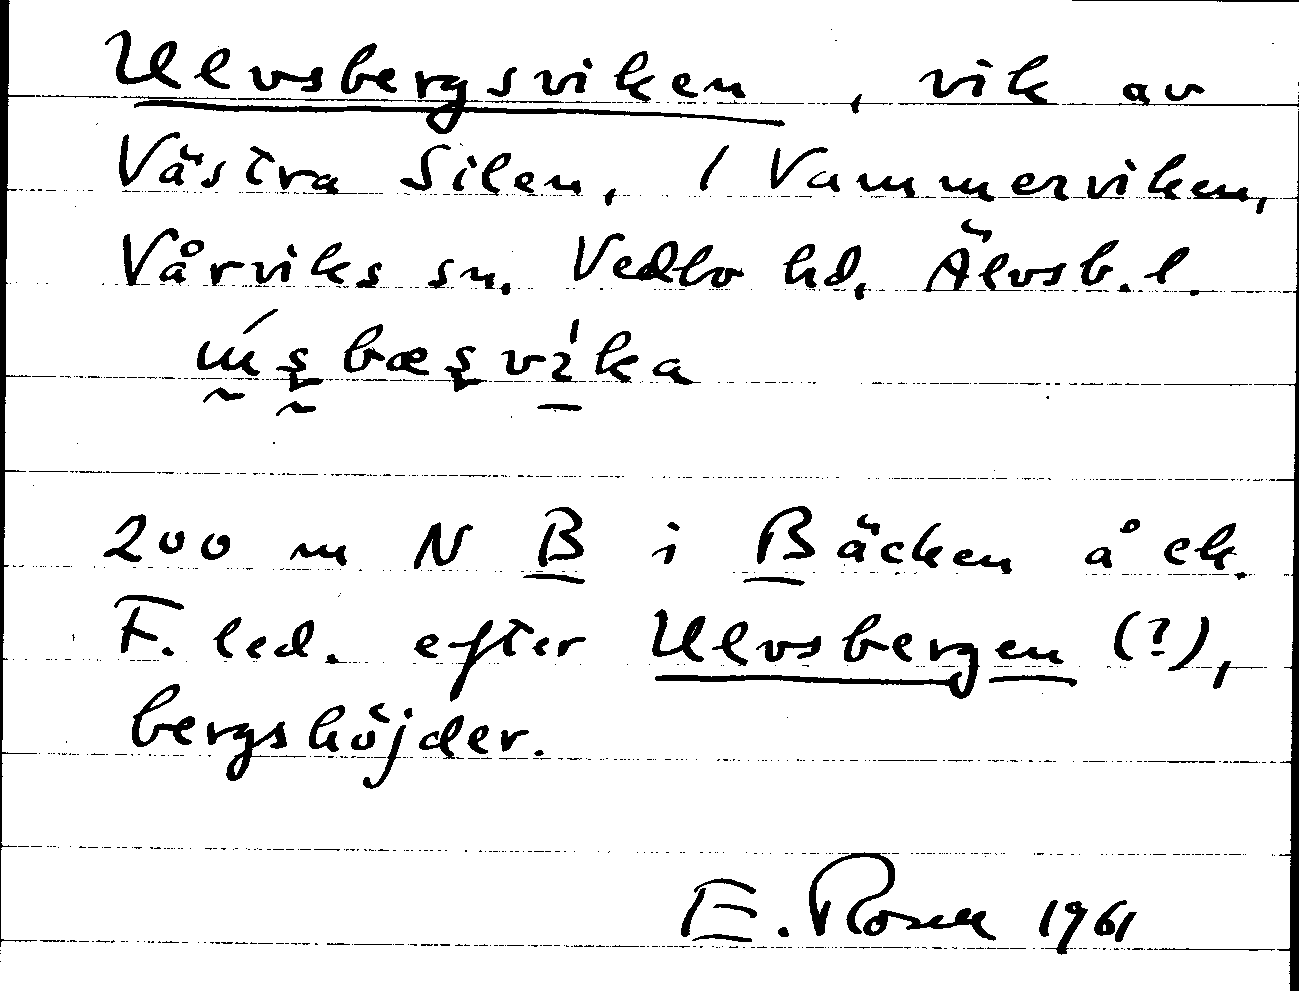 Ulvsbergsviken, vik av
Västra Silen, / Vammerviken,
Vårviks sn. Vedbo hd, Älvsb. l.
200 m N B i Bäcken å ek.
F. led. efter Ulvsbergen (?),
bergshöjder.
E. Rosell 1961